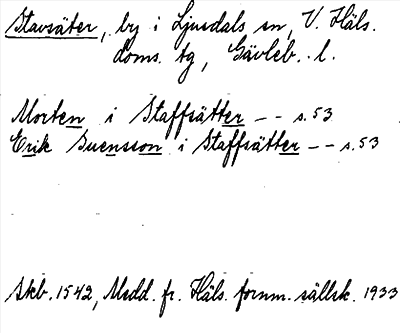 Stavsäter, by i Ljusdals sn, V. Häls.
doms. tg, Gävleb. l.
Morten i Staffsätter – – s. 53
Erik Suensson i Staffsätter – – s. 53
Skb. 1542, Medd. fr. Häls. fornm. sällsk. 1933